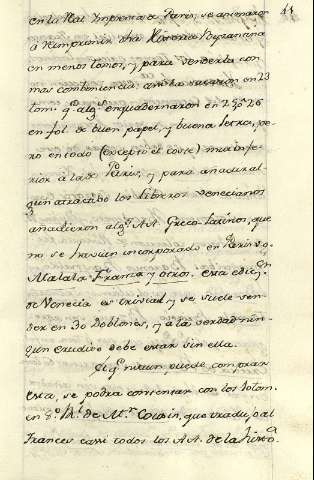 44
en la Real Imprenta de Paris, se animaron
a Reimprimir dha Historia Byzantina
en menos tomos, y para venderla con
mas combeniencia. ambos sacaron en 23
tom.s q.e alg.s enquadernaron en 25, o 26
en fol. de buen papel, y buena letra, pe-
ro en todo (excepto el coste) mui infe-
rior a la de Paris, y para añadir al-
gun atractivo los libreros venecianos
añadieron alg.s AA. Greco-latinos, que
no se havian incorporado en Paris v.g.
Malala Franza y otros. esta edic.on
de Venecia es trivial y se suele ven-
der en 30 Doblones, y a la verdad nin-
gun erudito debe estar sin ella.
El q.e ni aun puede comprar
esta, se podra contentar con los tom.
en 8.o de M.r Cousin, que traduxo al
Frances casi todos los AA. de la Hist.a